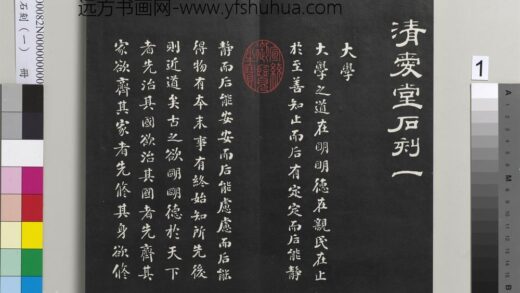 远方书画网- www.yfshuhua.com
清愛堂石刻一
大學
大學之道在明明德在親民在止
於至善知止而后有定定而后能靜
靜而后能安安而后能慮慮而后能
得物有本末事有終始知所先後
則近道矣古之欲明明德於天下
者先治其國欲治其國者先齊其
家欲齊其家者先修其身欲修
1
石刻(一) 冊